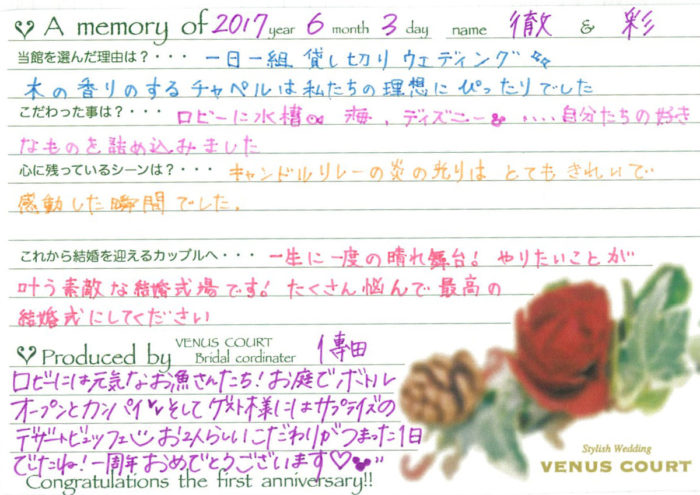 A memory of 2017 year 6 month 3 day name 徹 & 彩
当館を選んだ理由は?・・・ 一日一組 貸し切りウェディング
木の香りのするチャペルは私たちの理想にぴったりでした
こだわった事は?・・・ ロビーに水槽 海、ディズニー ・・・・自分たちの好き
なものを詰め込みました
心に残っているシーンは?・・・ キャンドルリレーの炎の光りは とてもきれいで
感動した瞬間でした.
これから結婚を迎えるカップルへ・・・ 一生に一度の晴れ舞台! やりたいことが
叶う素敵な結婚式場です! たくさん悩んで最高の
結婚式にしてください
Produced by VENUS COURT Bridal cordinater 傳田
ロビーには元気なお魚さんたち!お庭でボトル
オープンとカンパイ そしてゲスト様にはサプライズの
デザートビュッフェ お2人らしいこだわりがつまった1日
でしたね!一周年おめでとうございます♡
Congratulations the first anniversary!!
Stylish Wedding
VENUS COURT